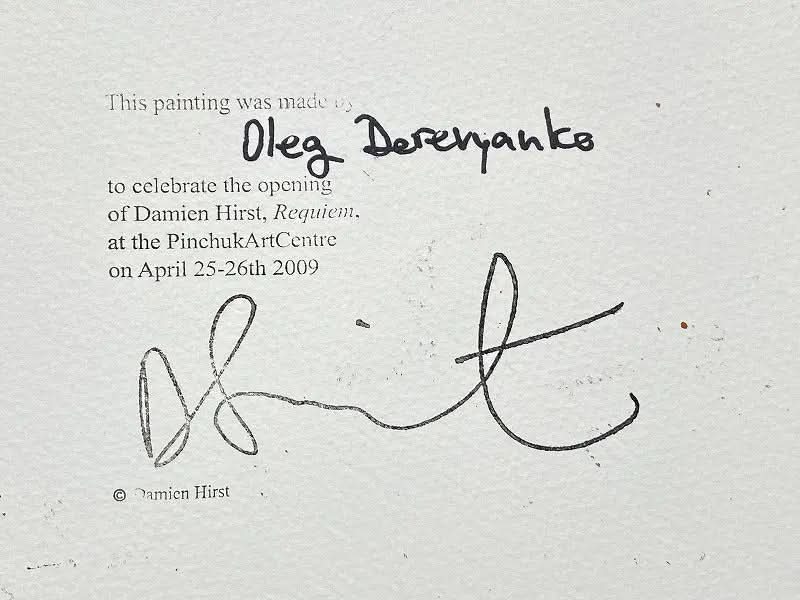 This painting was made by
Oleg Derevyanko
to celebrate the opening
of Damien Hirst, Requiem,
at the PinchukArtCentre
on April 25-26th 2009
D Hirst
© Damien Hirst